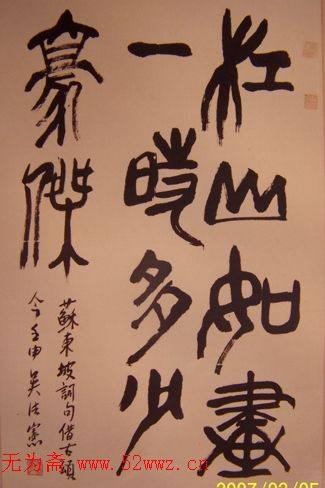 江山如畫
一時多少
豪傑
蘇東坡詞句借古頌
今壬申吳法憲
无为斋 www.52wwz.cn